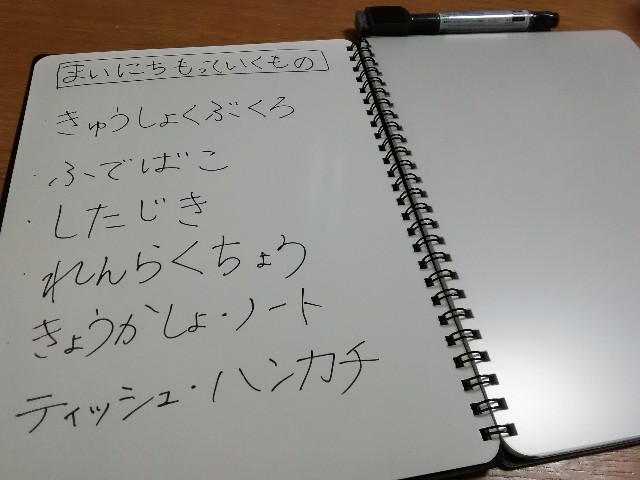 まいにちもっていくもの
きゅうしょくぶくろ
・ふでばこ
・したじき
れんらくちょう
きょうかしょ・ノート
ティッシュ・ハンカチ